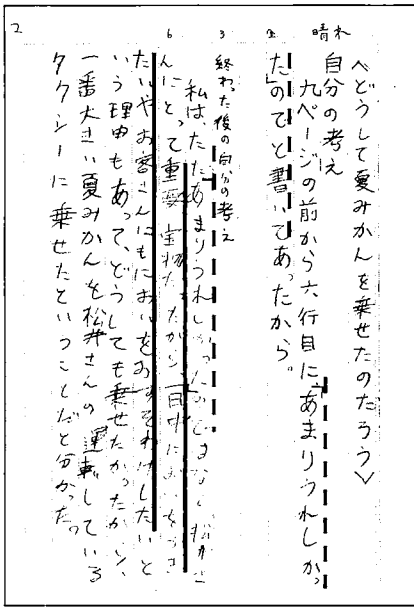 晴れ
<どうして夏みかんを乗せたのだろう>
自分の考え
九ページの前から六行目に、「あまりうれしかっ
たので」と書いてあったから。
終わった後の自分の考え
私は、ただあまりうれしかったのでまなく松井さ
んにとって重要 宝物だったから 一日中においをつき
たいやお客さんにもにおいをおすそわけしたいと
いう理由もあって、どうしても乗せたかったから、
一番大きい夏みかんを松井さんの運転している
タクシーに乗せたということだと分かった。